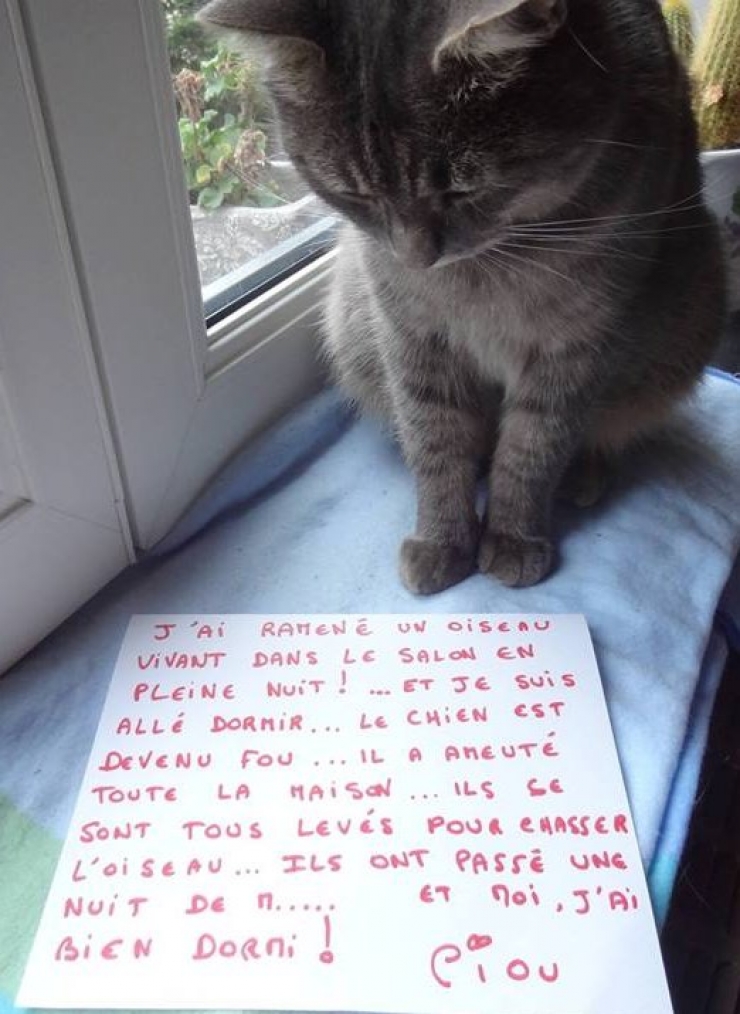 J'Ai RAMENÉ UN OiSEAU
ViVANT DANS LE SALON EN
PLEiNE NUiT ! ... ET JE SUiS
ALLÉ DORMiR... LE CHiEN EST
DEVENU FOU ... IL A AMEUTÉ
TOUTE LA MAiSON ... ILS SE
SONT TOUS LEVÉS POUR CHASSER
L'OiSEAU... ILS ONT PASSÉ UNE
NUiT DE M..... ET MOi, J'Ai
BiEN DORMi !
Piou